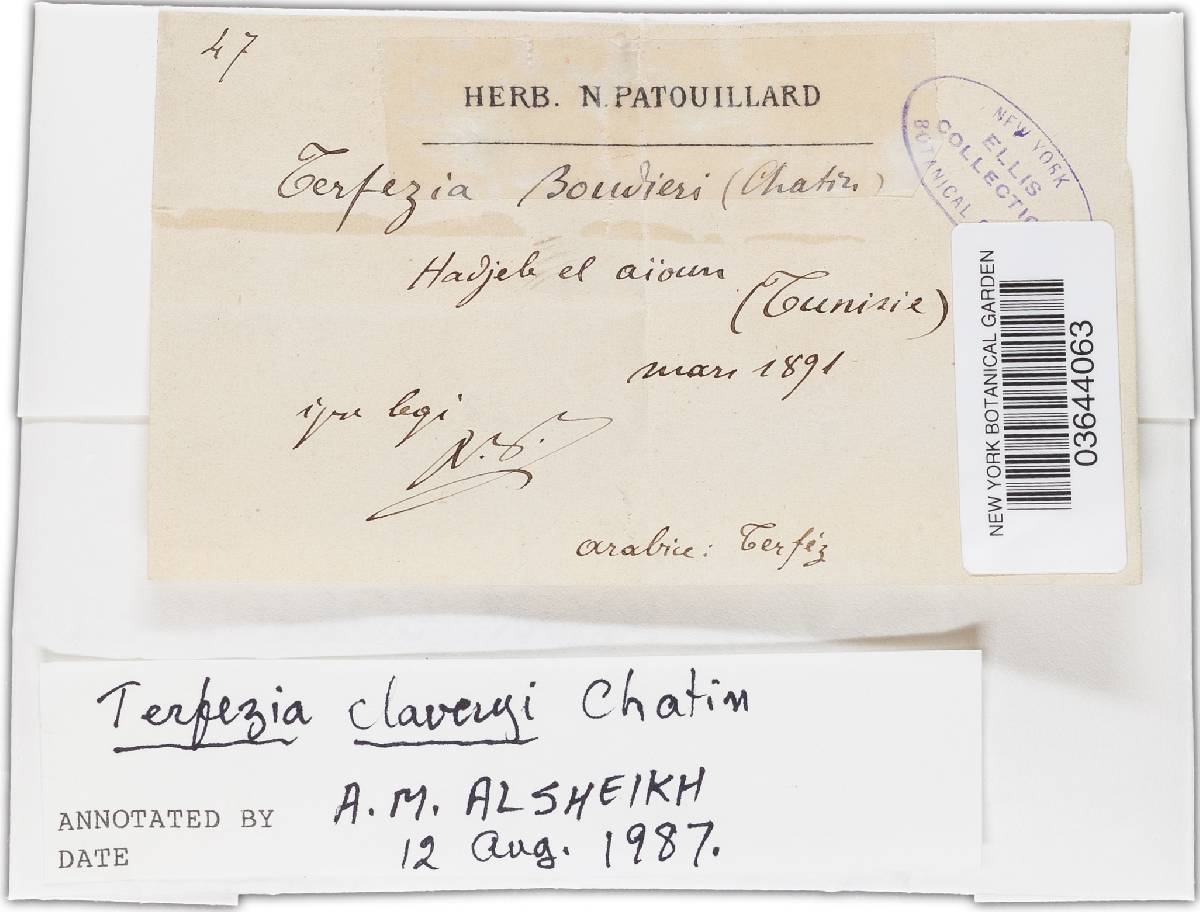 47
HERB. N. PATOUILLARD
Terfezia Boudieri (Chatin)
Hadjeb el aïoun
(Tunisie)
mars 1891
ipse legi
N.P.
arabice: Terféz
NEW YORK
BOTANICAL
ELLIS
COLLECTIO
NEW YORK BOTANICAL GARDEN
03644063
Terfezia claveryi Chatin
ANNOTATED BY A. M. ALSHEIKH
DATE 12 Aug. 1987.